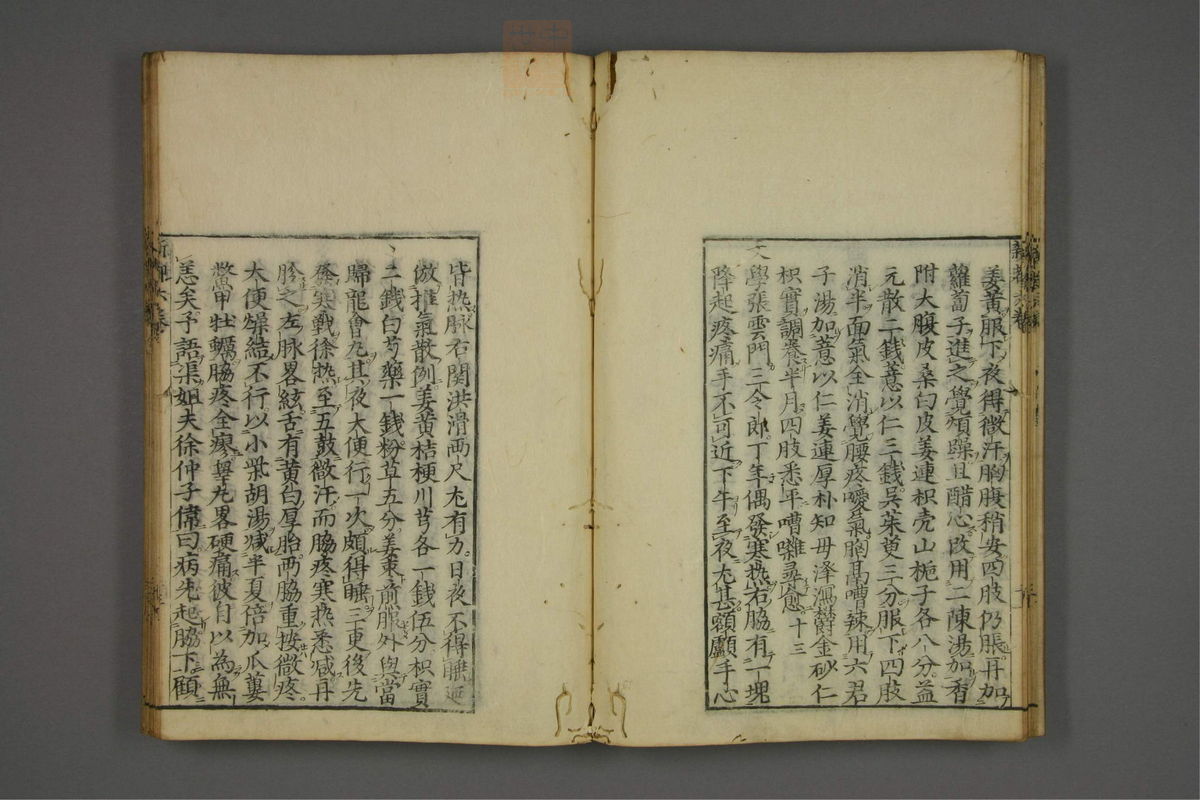 姜黃服下夜得微汗胸腹稍安四肢仍脹再加
蘿蔔子進之覺煩躁且醋心改用二陳湯加香
附大腹皮桑白皮姜連枳壳山梔子各八分益
元散二錢薏以仁三錢吳茱萸三分服下四肢
消半面氣全消覺腰疼噯氣胸膈嘈辣用六君
子湯加薏以仁姜連厚朴知母澤瀉欝金砂仁
枳實調養半月四肢悉平嘈雜尋愈十三
學張雲門三令郎丁年偶發寒热右脇有一塊
降起疼痛手不可近下午至夜尤甚額顱手心
皆热脉右関洪滑兩尺尤有力日夜不得睡
倣推氣散例姜黃桔梗川芎各一錢伍分枳實
二錢白芍藥一錢粉草五分姜棗煎服外與當
歸龍會丸其夜大便行一次頗得睡三更後先
發寒戰徐热至五鼓微汗而脇疼寒热悉减再
胗之左脉畧絃舌有黃白厚胎两脇重按微疼
大便燥結不行以小柴胡湯减半夏倍加瓜蔞
鱉甲牡蠣脇疼全瘳睾丸畧硬痛彼自以為無
恙矣予語渠姐夫徐仲子偉曰病先起脇下顧